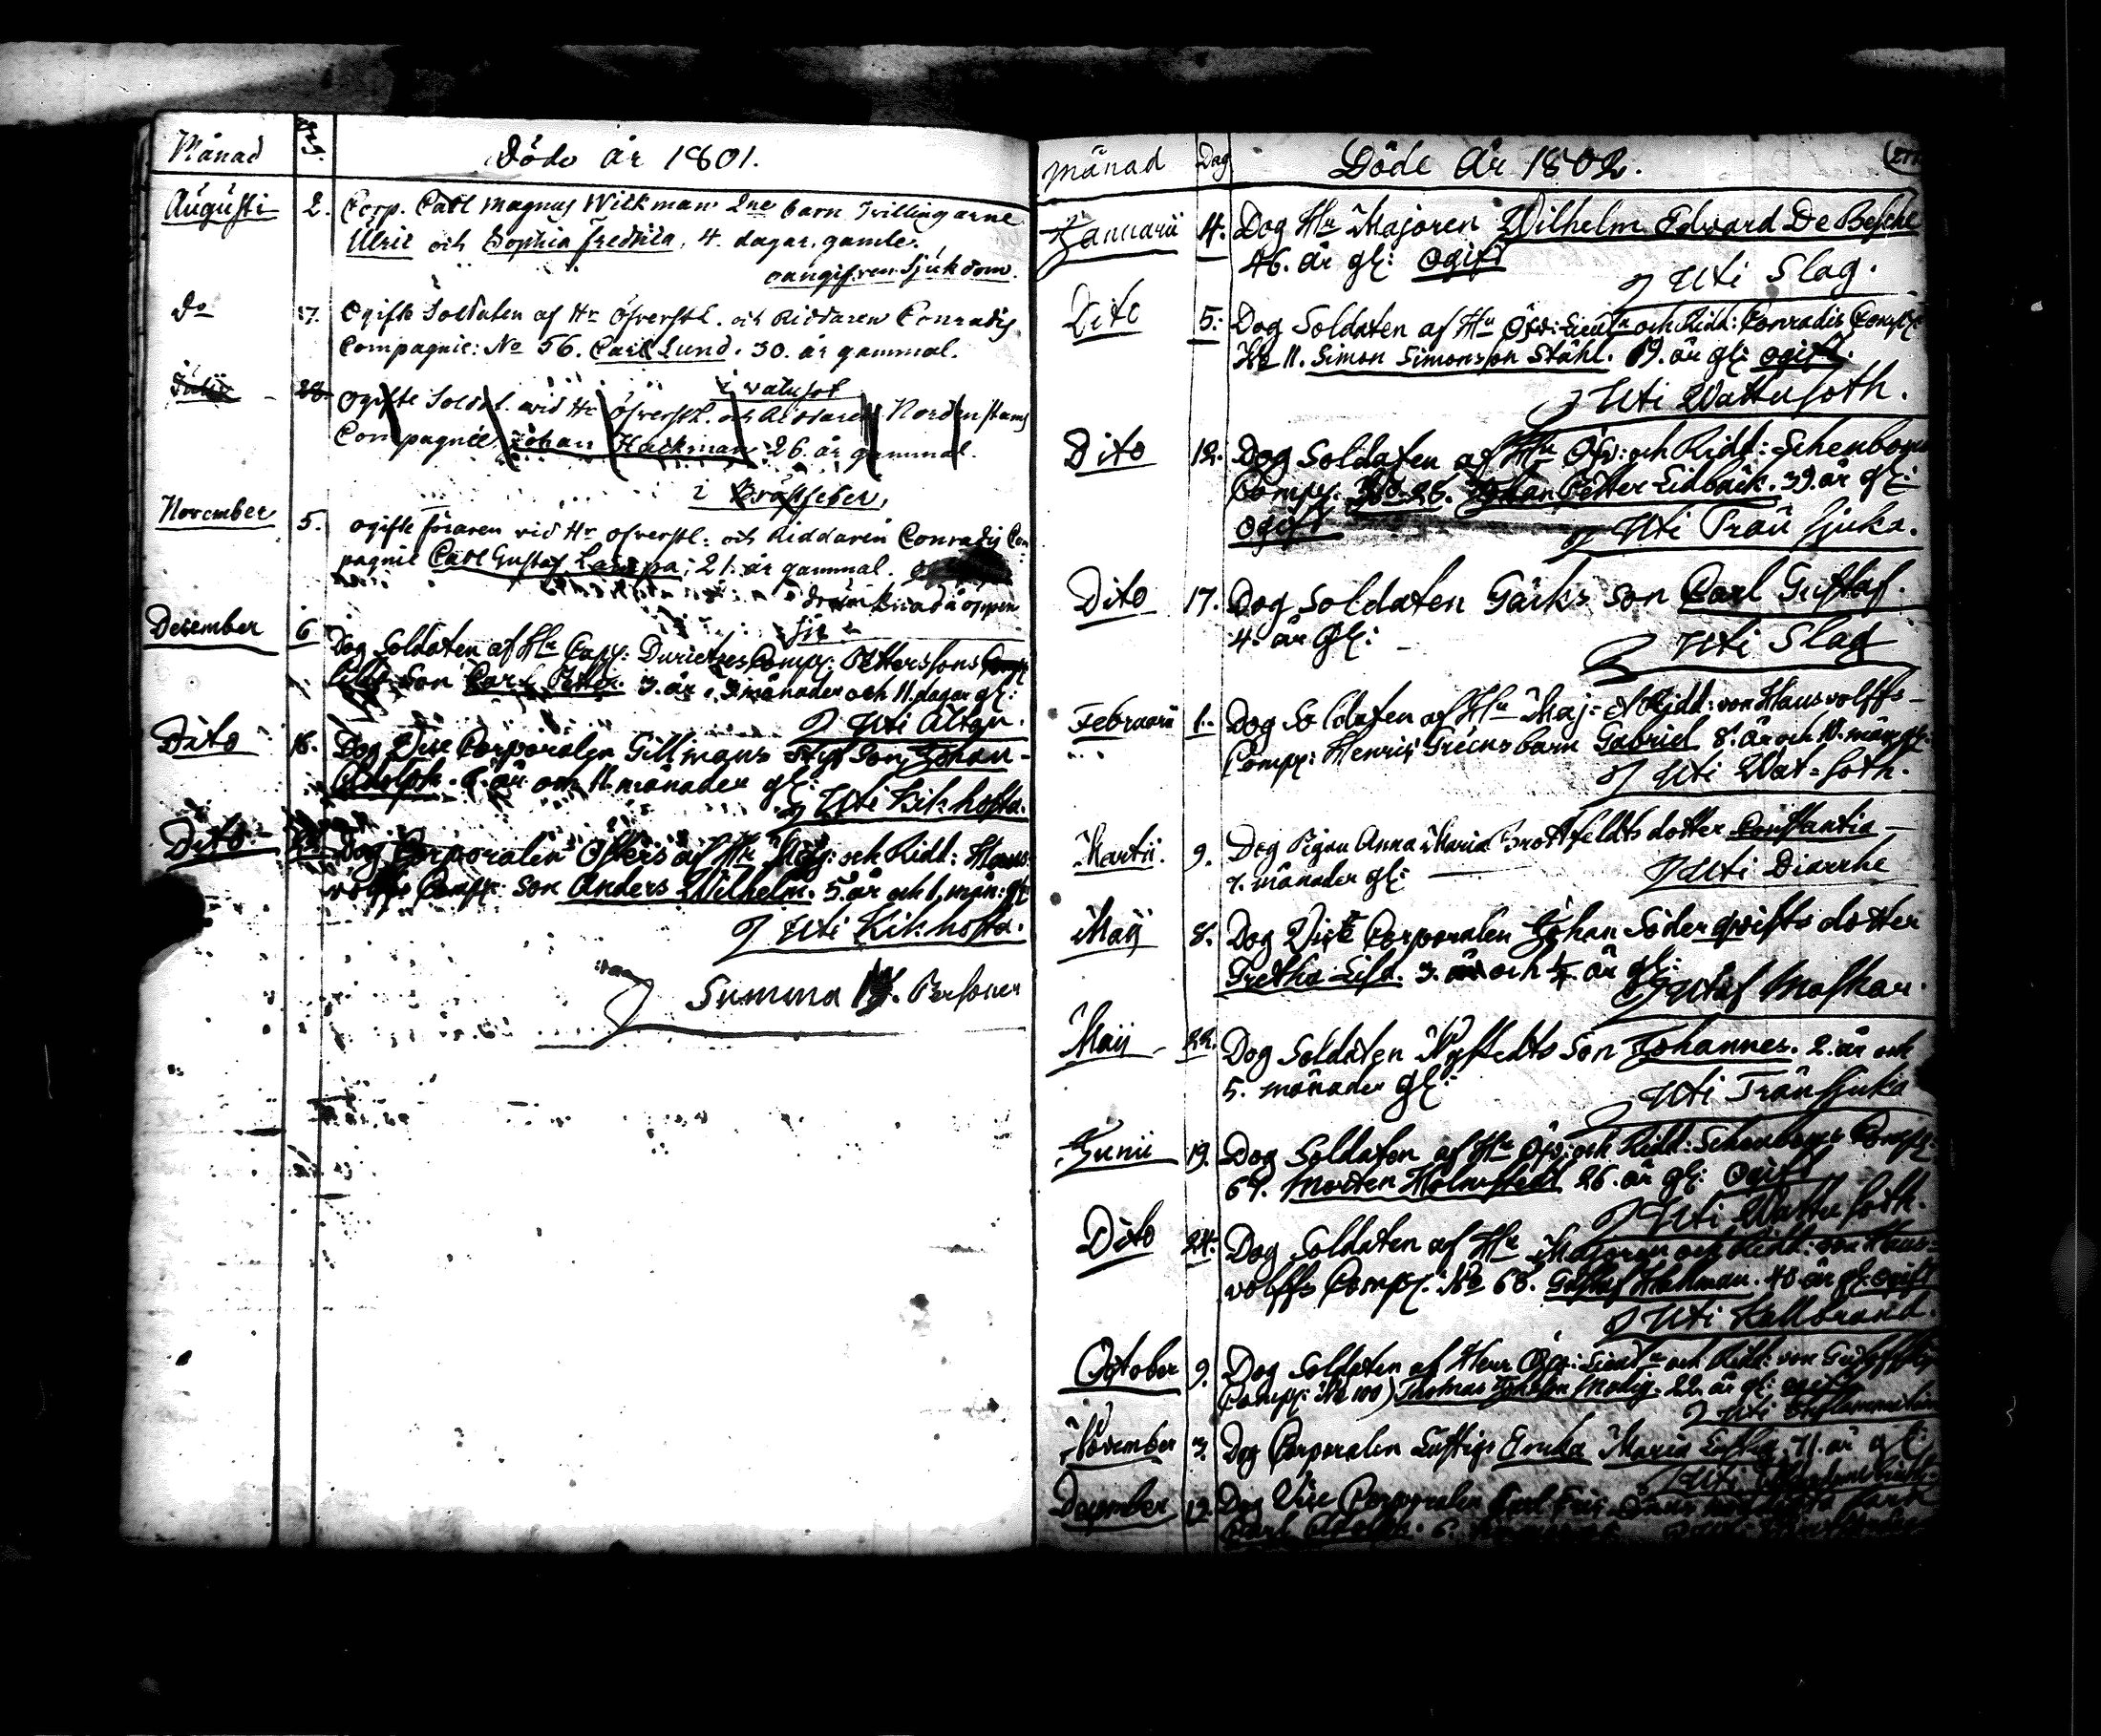 Månad Dag. Döde år 1801.
Augusti 2. Corp. Carl Magnus Wilkman 2ne barn Tvillingarne
Ulric och Sophia Fredrica, 4. dagar, gamle.
oangifven Sjukdom.
Do 17. Ogifte Soldaten af Hr Öfverstl. och Riddaren Conradis
Compagnie: No 56. Carl Lund. 30. år gammal.
i vatusot
Julii 28. Ogifte Soldat. wid Hr Öfverstl. och Riddaren Nordenstams
Compagnie, Johan Hackman 26. år gammal.
i Bröstfeber,
November 5. ogifte föraren vid Hr öfverstl: och Riddaren Conradis Com
pagnie Carl Gustaf 21. år gammal.
i öppen
sjö
December 6 Dog Soldaten af Hr Cap: Durietzes Comp: Petterssons
Son Carl Petter. 3. år, 3 månader och 11. dagar gl:
Uti Altan.
Dito 16. Dog Vice Corporalen Gillmans Son Johan
Adolph. 6. år och 11. månader gl:
Uti Kikhosta.
Dito. Dog Corporalen af Hr Maj: och Ridd: Haus
wolffs Comp: Son Anders Wilhelm. 5. år och 1. mån: gl:
Uti Kikhosta.
Summa Personer
Månad Dag Döde År 1802.
Januarii 4. Dog Hr Majoren Wilhelm Edvard De Besche
46. år gl: Ogift
Uti Slag.
Dito 5: Dog Soldaten af Hr Öfv: Lieutn och Ridd: Conradis Comp:
No 11. Simon Simonsson Ståhl. 19. år gl: ogift.
Uti Wattusoth.
Dito 12. Dog Soldaten af Hr Öfv: och Ridd: Schenboms
Comp: No. 26. Johan Petter Lidbäck. 39. år gl:
Ogift
Uti Trån sjuka.
Dito 17. Dog Soldaten Gärks Son Carl Gustaf.
4. år gl:
Uti Slag
Februarii 1. Dog Soldaten af Hr Maj: & Ridd: von Hauswolffs
Comp: Henric Greens barn Gabriel 8. år och 10. mån gl:
Uti Wat-soth.
Martii. 9. Dog Pigan Anna Maria Brottfeldts dotter Constantia
7. månader gl:
Uti Diarrhe
Maij 8. Dog Vice Corporalen Johan Söderqvists dotter
Gretha Lisa. 3. och ½ år gl:
Utaf Maskar.
Maij 22. Dog Soldaten Nystedts Son Johannes. 2. år och
5. månader gl:
Uti Trånsjuka
Junii 19. Dog Soldaten af Hr Öfv: och Ridd: Schenboms Comp:
69. Morten Holmstedt 26. år gl: Ogift
Uti Wattusoth.
Dito 24. Dog Soldaten af Hr Majoren och Ridd: von Haus-
wolffs Comp: No 68. Gustaf Hallman. 40 år gl: ogift
Uti Kallbrand.
October 9. Dog Soldaten af Herr Öfv: Lieutn och Ridd: von
Comp: No 100) Thomas Molig. 22. år gl: ogift
Uti Inflammation
November 3. Dog Corporalen Luftigs Enka Maria Luftig. 71. år gl:
Uti
December 12. Dog Vice Corporalen Carl
Carl Adolph. 6.